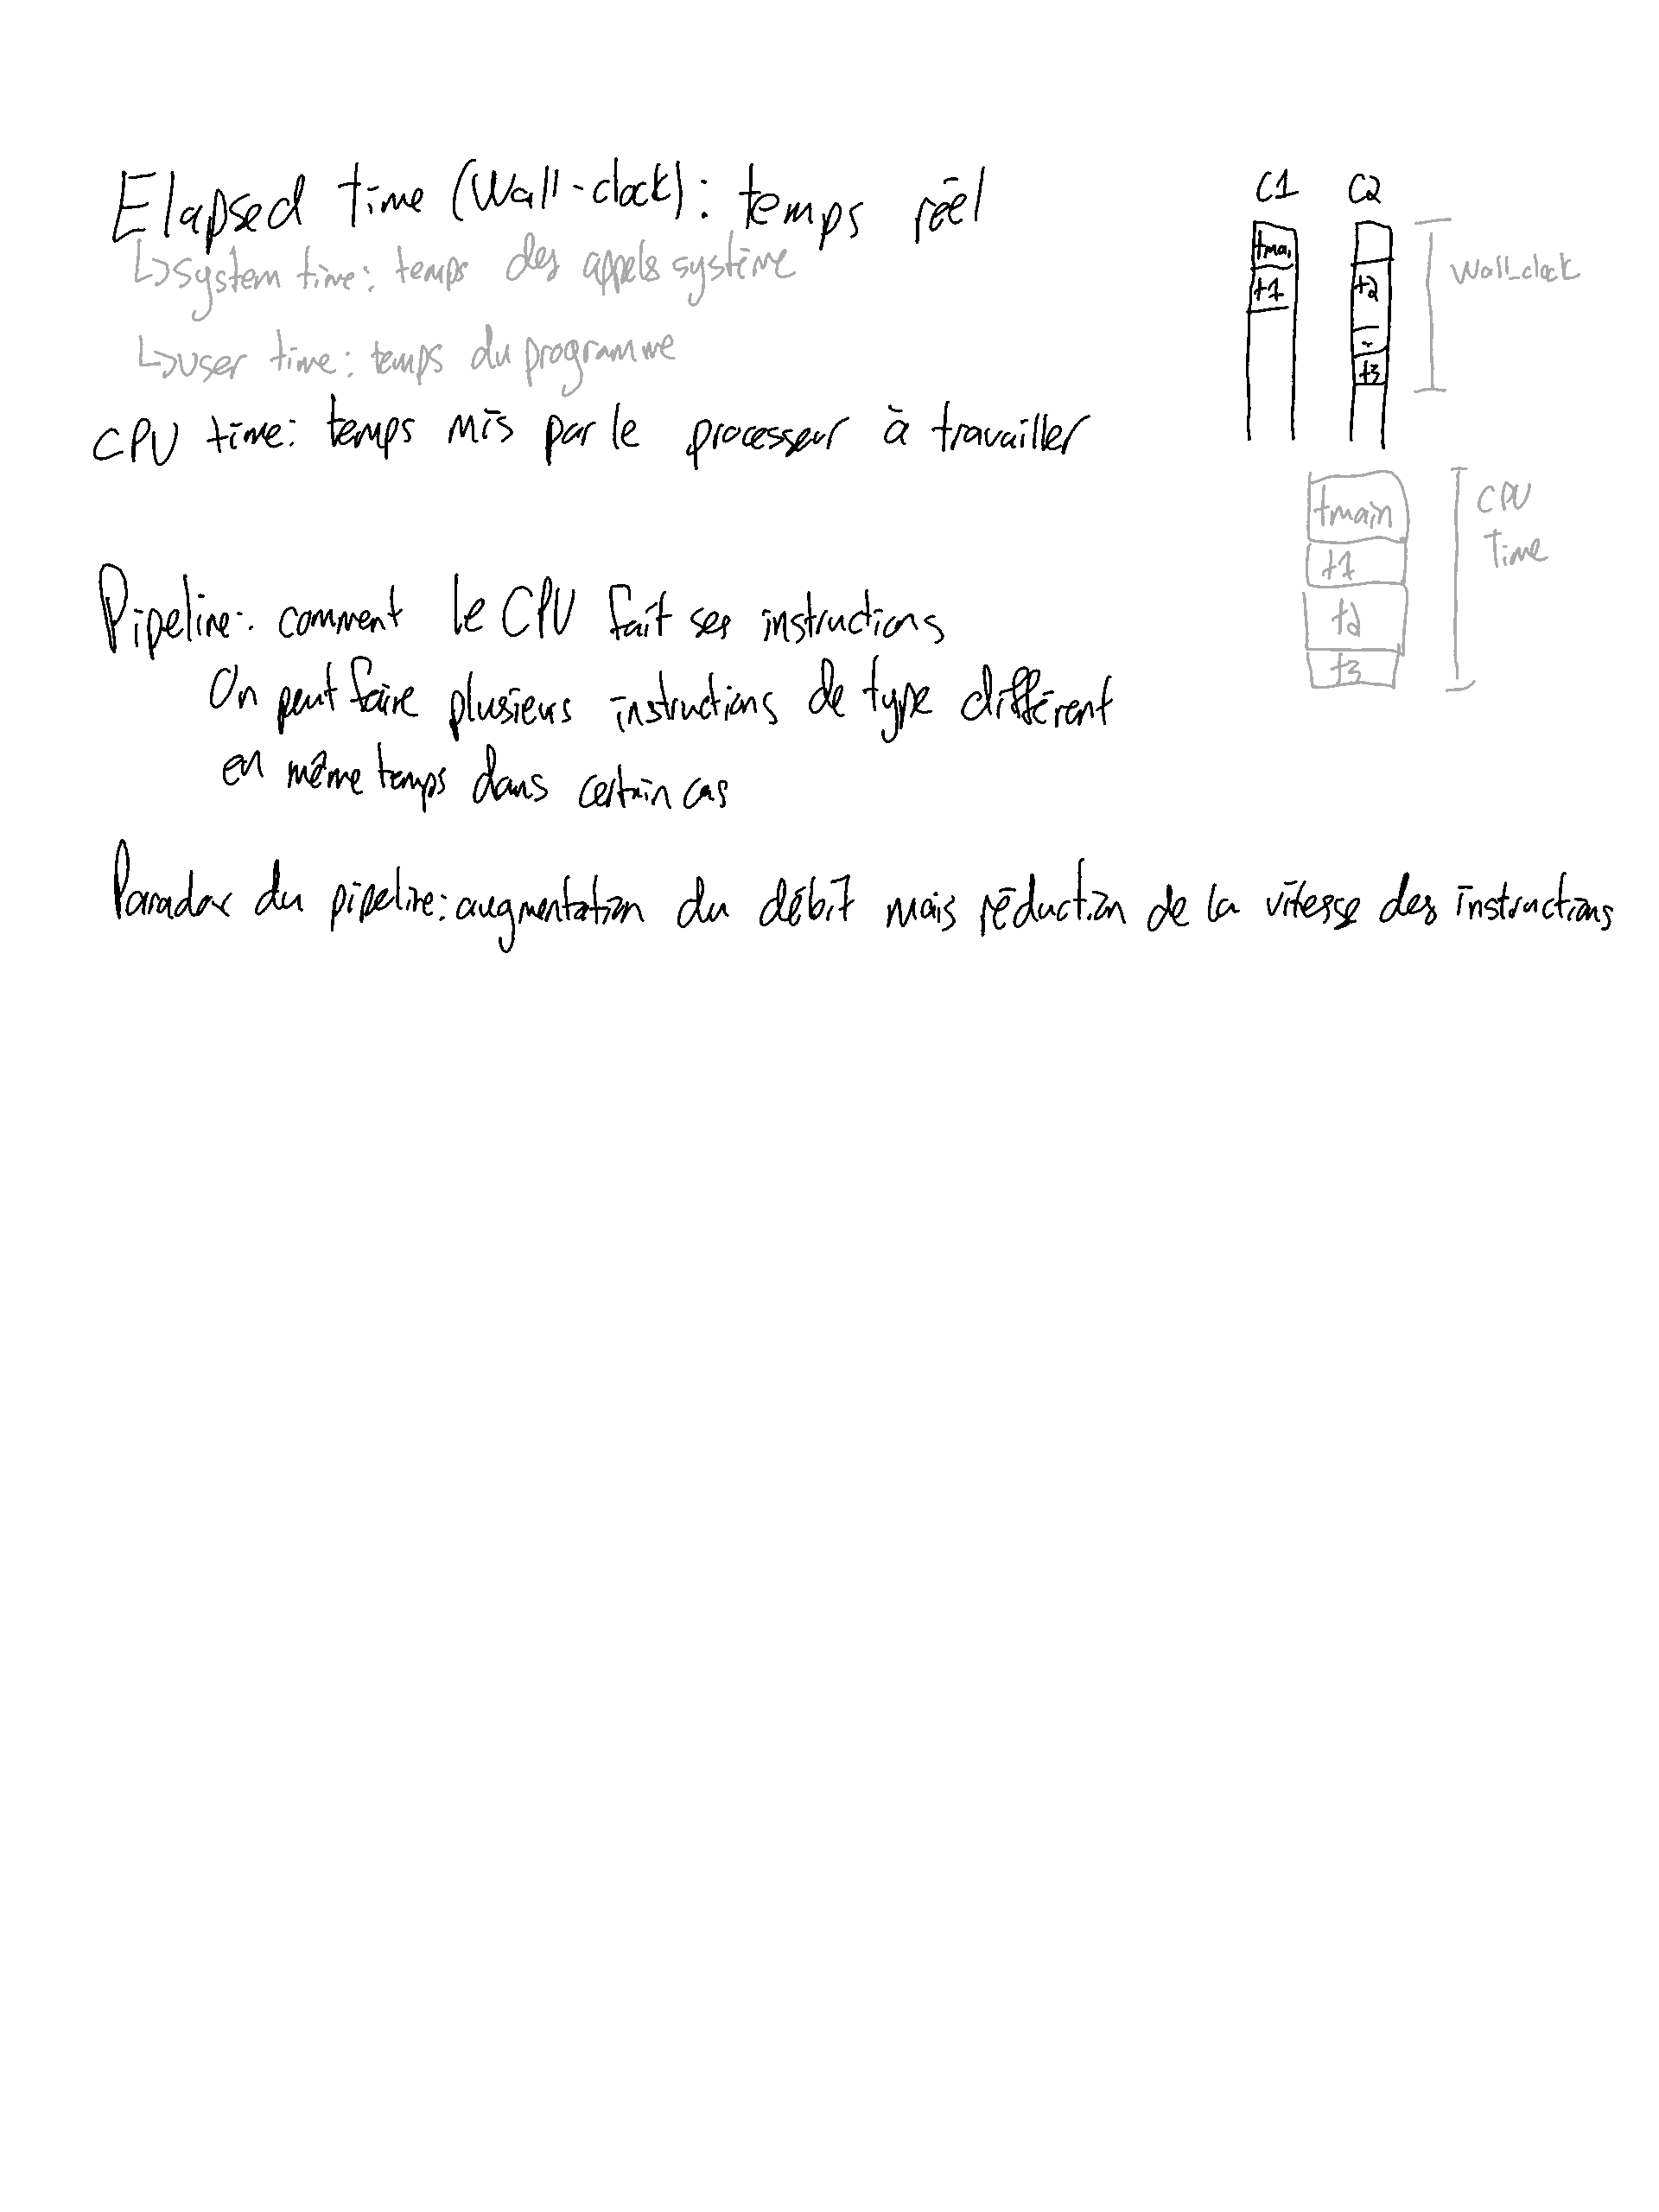 Elapsed time (Wall-clock): temps réel
↳system time: temps des appels système
↳user time: temps du programme
CPU time: temps mis par le processeur à travailler
C1 C2
tmai
t1
t2
t3
Wall_clock
tmain
t1
t2
t3
CPU
Time
Pipeline: comment le CPU fait ses instructions
On peut faire plusieurs instructions de type différent
en même temps dans certain cas
Paradox du pipeline: augmentation du débit mais réduction de la vitesse des instructions